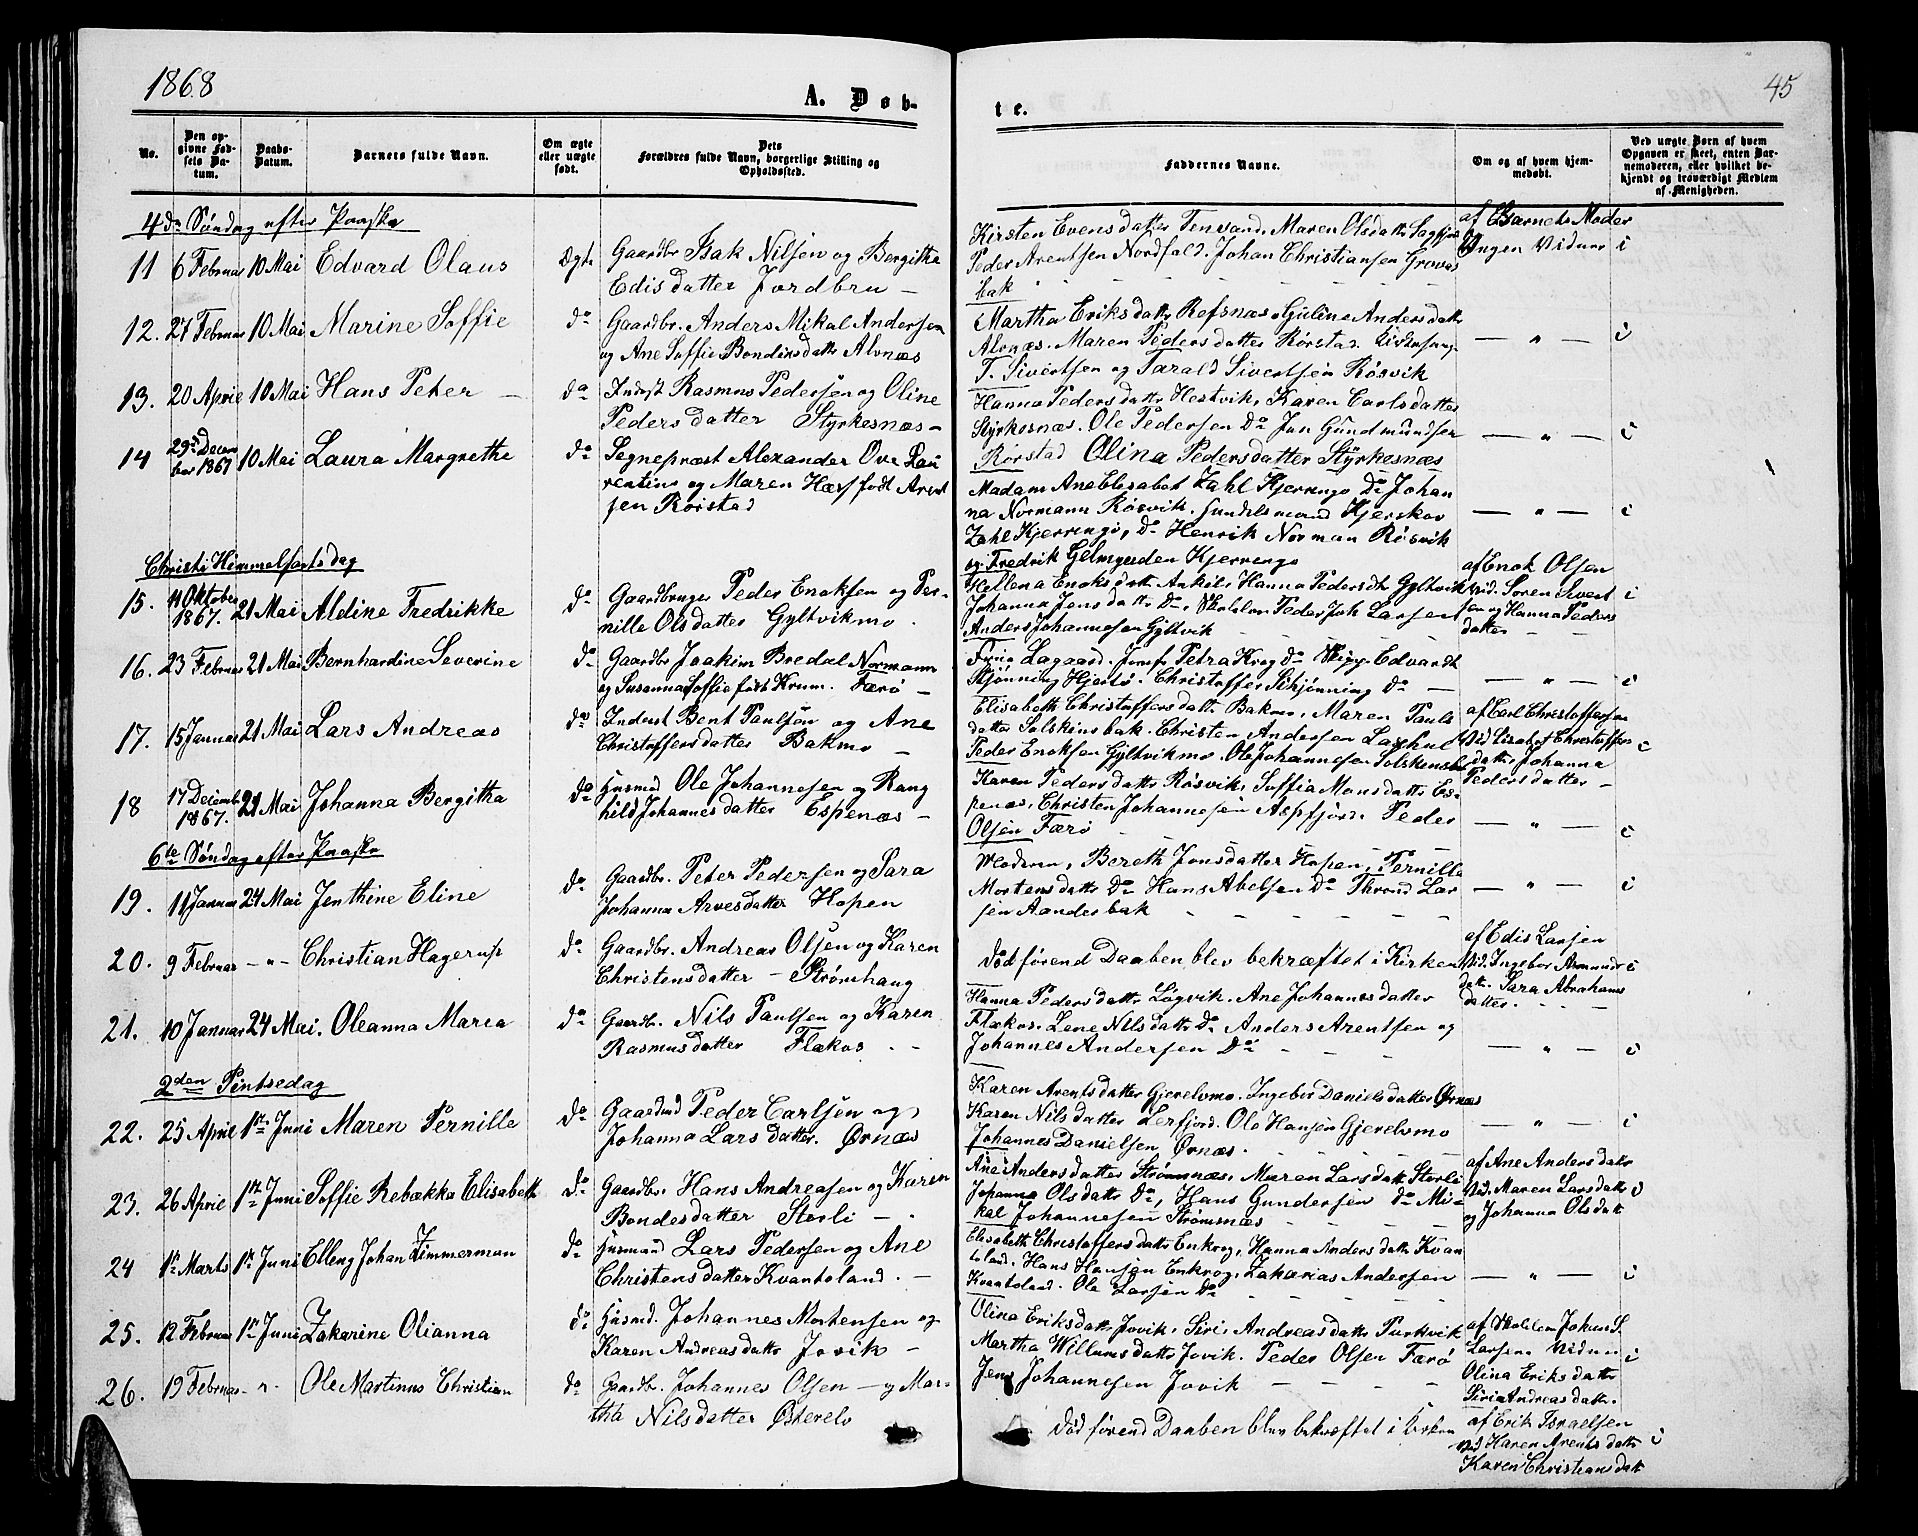 1868
A. Døb-
No.
Den op-
givne Fød-
sels Da-
tum.
Daabs-
Datum.
Barnets fulde Navn.
Om ægte
eller uægte
født.
Dets
Forældres fulde Navn, borgerlige Stilling og
Opholdssted.
4de Søndag efter Paaske
11 6 Februar 10 Mai Edvard Olaus Ægte Gaardbr Isak Nilsen og Bergitha
Edisdatter Jordbru –
12. 27 Februar 10 Mai Marine Soffie do Gaardbr. Anders Mikal Andersen
og Ane Soffie Bendiksdattr Alvnæs
13. 20 April 10 Mai Hans Peter – do Inderst Rasmus Pedersen og Oline
Pedersdatter Styrkesnæs –
14 29de Decem
ber 1867 10 Mai Laura Margrethe do Segnepræst Alexander Ove Lau
rentius og Maren Hass født Arnt
sen Rørstad
Christi Himmelfartsdag
15. 11 Oktober
1867. 21 Mai Aldine Fredrikke do Gaardbruger Peder Enoksen og Per-
nille Olsdatter Gyltvikmo.
16. 23 Februar 21 Mai Bernhardine Severine do Gaardbr Joakim Bredal Normann
og Susanna Soffie født Krum. Færø –
17. 15 Januar 21 Mai Lars Andreas do Inderst Bent Paulsen og Ane
Christoffersdatter Bakmo –
18 17 Decemb
1867. 21 Mai Johanna Bergitha do Husmd Ole Johannesen og Rang
hild Johannesdatter Espenæs –
6te Søndag efter Paaske
19. 11 Januar 24 Mai Jenthine Eline do Gaardbr. Peter Pedersen og Sara
Johanna Arvesdatter Hopen
20. 9 Februar – " – Christian Hagerup do Gaardbr. Andreas Olsen og Karen
Christensdatter – Strømhaug
21. 10 Januar 24 Mai. Oleanna Maria do Gaardbr. Nils Paulsen og Karen
Rasmusdatter Flækos. –
2den Pintsedag
22. 25 April 1ste Juni Maren Pernille do Gaardmd Peder Carlsen og
Johanna Larsdatter. Ørnæs
23. 26 April 1ste Juni Soffie Rebækka Elisabeth do Gaardbr. Hans Andreasen og Karen
Bondesdatter Storli –
24 1ste Marts 1ste Juni Elling Johan Zimmerman do Husmand Lars Pedersen og Ane
Christensdatter Kvantoland. –
25. 12 Februar 1ste Juni Zakarine Olianna do Husmd. Johannes Mortensen og
Karen Andreasdattr Jovik –
26. 19 Februar – " – Ole Martinus Christian do Gaardbr. Johannes Olsen – og Mar-
tha Nilsdatter Østerelv
45
te.
Faddernes Navne.
Om og af hvem hjem-
medøbt.
Ved uægte Børn af hvem
Opgaven er skeet, enten Bar-
nemoderen, eller hvilket be-
kjendt og troværdigt Medlem
af Menigheden.
Kirsten Evensdatter Tensand. Maren Olsdattr Sagfjord af Barnets Moder
Peder Arentsen Nordfold. Johan Christiansen Groves Ingen Vidner i
bak
Martha Eriksdattr Refsnæs Gjeline Andersdattr
Alvnæs. Maren Pedersdatter Rørstad. Kirkesang. – " – i
T. Sivertsen og Tarald Sivertsen Røsvik
Hanna Pedersdattr Hestvik. Karen Carlsdatter
Styrkesnæs. Ole Pedersen do Jan Gundmundsen – " – i
Rørstad Olina Pedersdatter Styrkesnæs
Madam Ane Elisabet Zahl Kjerringø do Johan
na Normann Røsvik. Handelsmand Hjerskov – " – i
Zahl Kjerringø, do Henrik Norman Røsvik
og Fredrik Gelmeyden Kjerringø
Hellena Enoksdattr Ankilv Hanna Pedersdt Gyltvik af Enok Olsen
Johanna Jensdattr do. Skolelær Peder Joh Larsen Vid. Søren Sivert i
Anders Johannesen Gyltvik sen og Hanna Peders
datter –
Frue Lagaard. Jomfr Petra Krog do Skipp. Edvardt
Skjønning Hjertø. Christoffer Schjønning do – – " – i
Elisabeth Christoffersdatt. Bakmo. Maren Pauls af Carl Christoffersen
datter Solskinsbak. Christen Andersen Laxhul Vid Lisabet Christoffers
Peder Enoksen Gyltvikmo. Ole Johannesen Solskinsbak dattr Johanna i
Karen Pedersdattr Røsvik, Soffia Monsdattr Es- Pedersdatter –
penæs. Christen Johannesen Aspfjord. Peder – " – i
Olsen Færø
Moderen, Bereth Jonsdatter Hopen, Pernilla
Mortensdattr do Hans Abelsen do Thrond Lar – " – i
sen Aandesbak
af Edis Larsen
Død førend Daaben blev bekræftet i Kirken Vid. Ingebor Amunds i
datt. Sara Abrahams
datter.
Hanna Pedersdattr Løgvik. Ane Johannesdatter
Flækos. Lene Nilsdattr do Anders Arentsen og
Johannes Andersen do – " – i
Karen Arentsdatter Gjerelvmo. Ingebor Danielsdatter Ørnæs
Karen Nilsdatter Lerfjord. Ole Hansen Gjerelvmo – " – i
Johannes Danielsen Ørnæs.
Ane Andersdatter Strømnæs. Maren Larsdatt Storli af Ane Andersdattr
Johanna Olsdattr do, Hans Gundersen do Mi- Vid. Maren Larsdattr i
kal Johannesen Strømsnæs og Johanna Olsdatt
Elisabeth Christoffersdattr Enkrog, Hanna Andersdattr Kvan
toland. Hans Hansen Enkrog, Zakarias Andersen – " – i
Kvantoland. Ole Larsen do
Olina Eriksdattr Jovik. Siri Andreasdattr Purkvik af Skolelær Johan S.
Martha Willumsdattr Jovik. Peder Olsen Færø Larsen Vidner i
Jens Johannesen Jovik Olina Eriksdatter
Siri Andreasdattr.
Død førend Daaben blev bekræftet i Kirken af Erik Israelsen
Vid Karen Arentsdattr i
Karen Christiansdatt